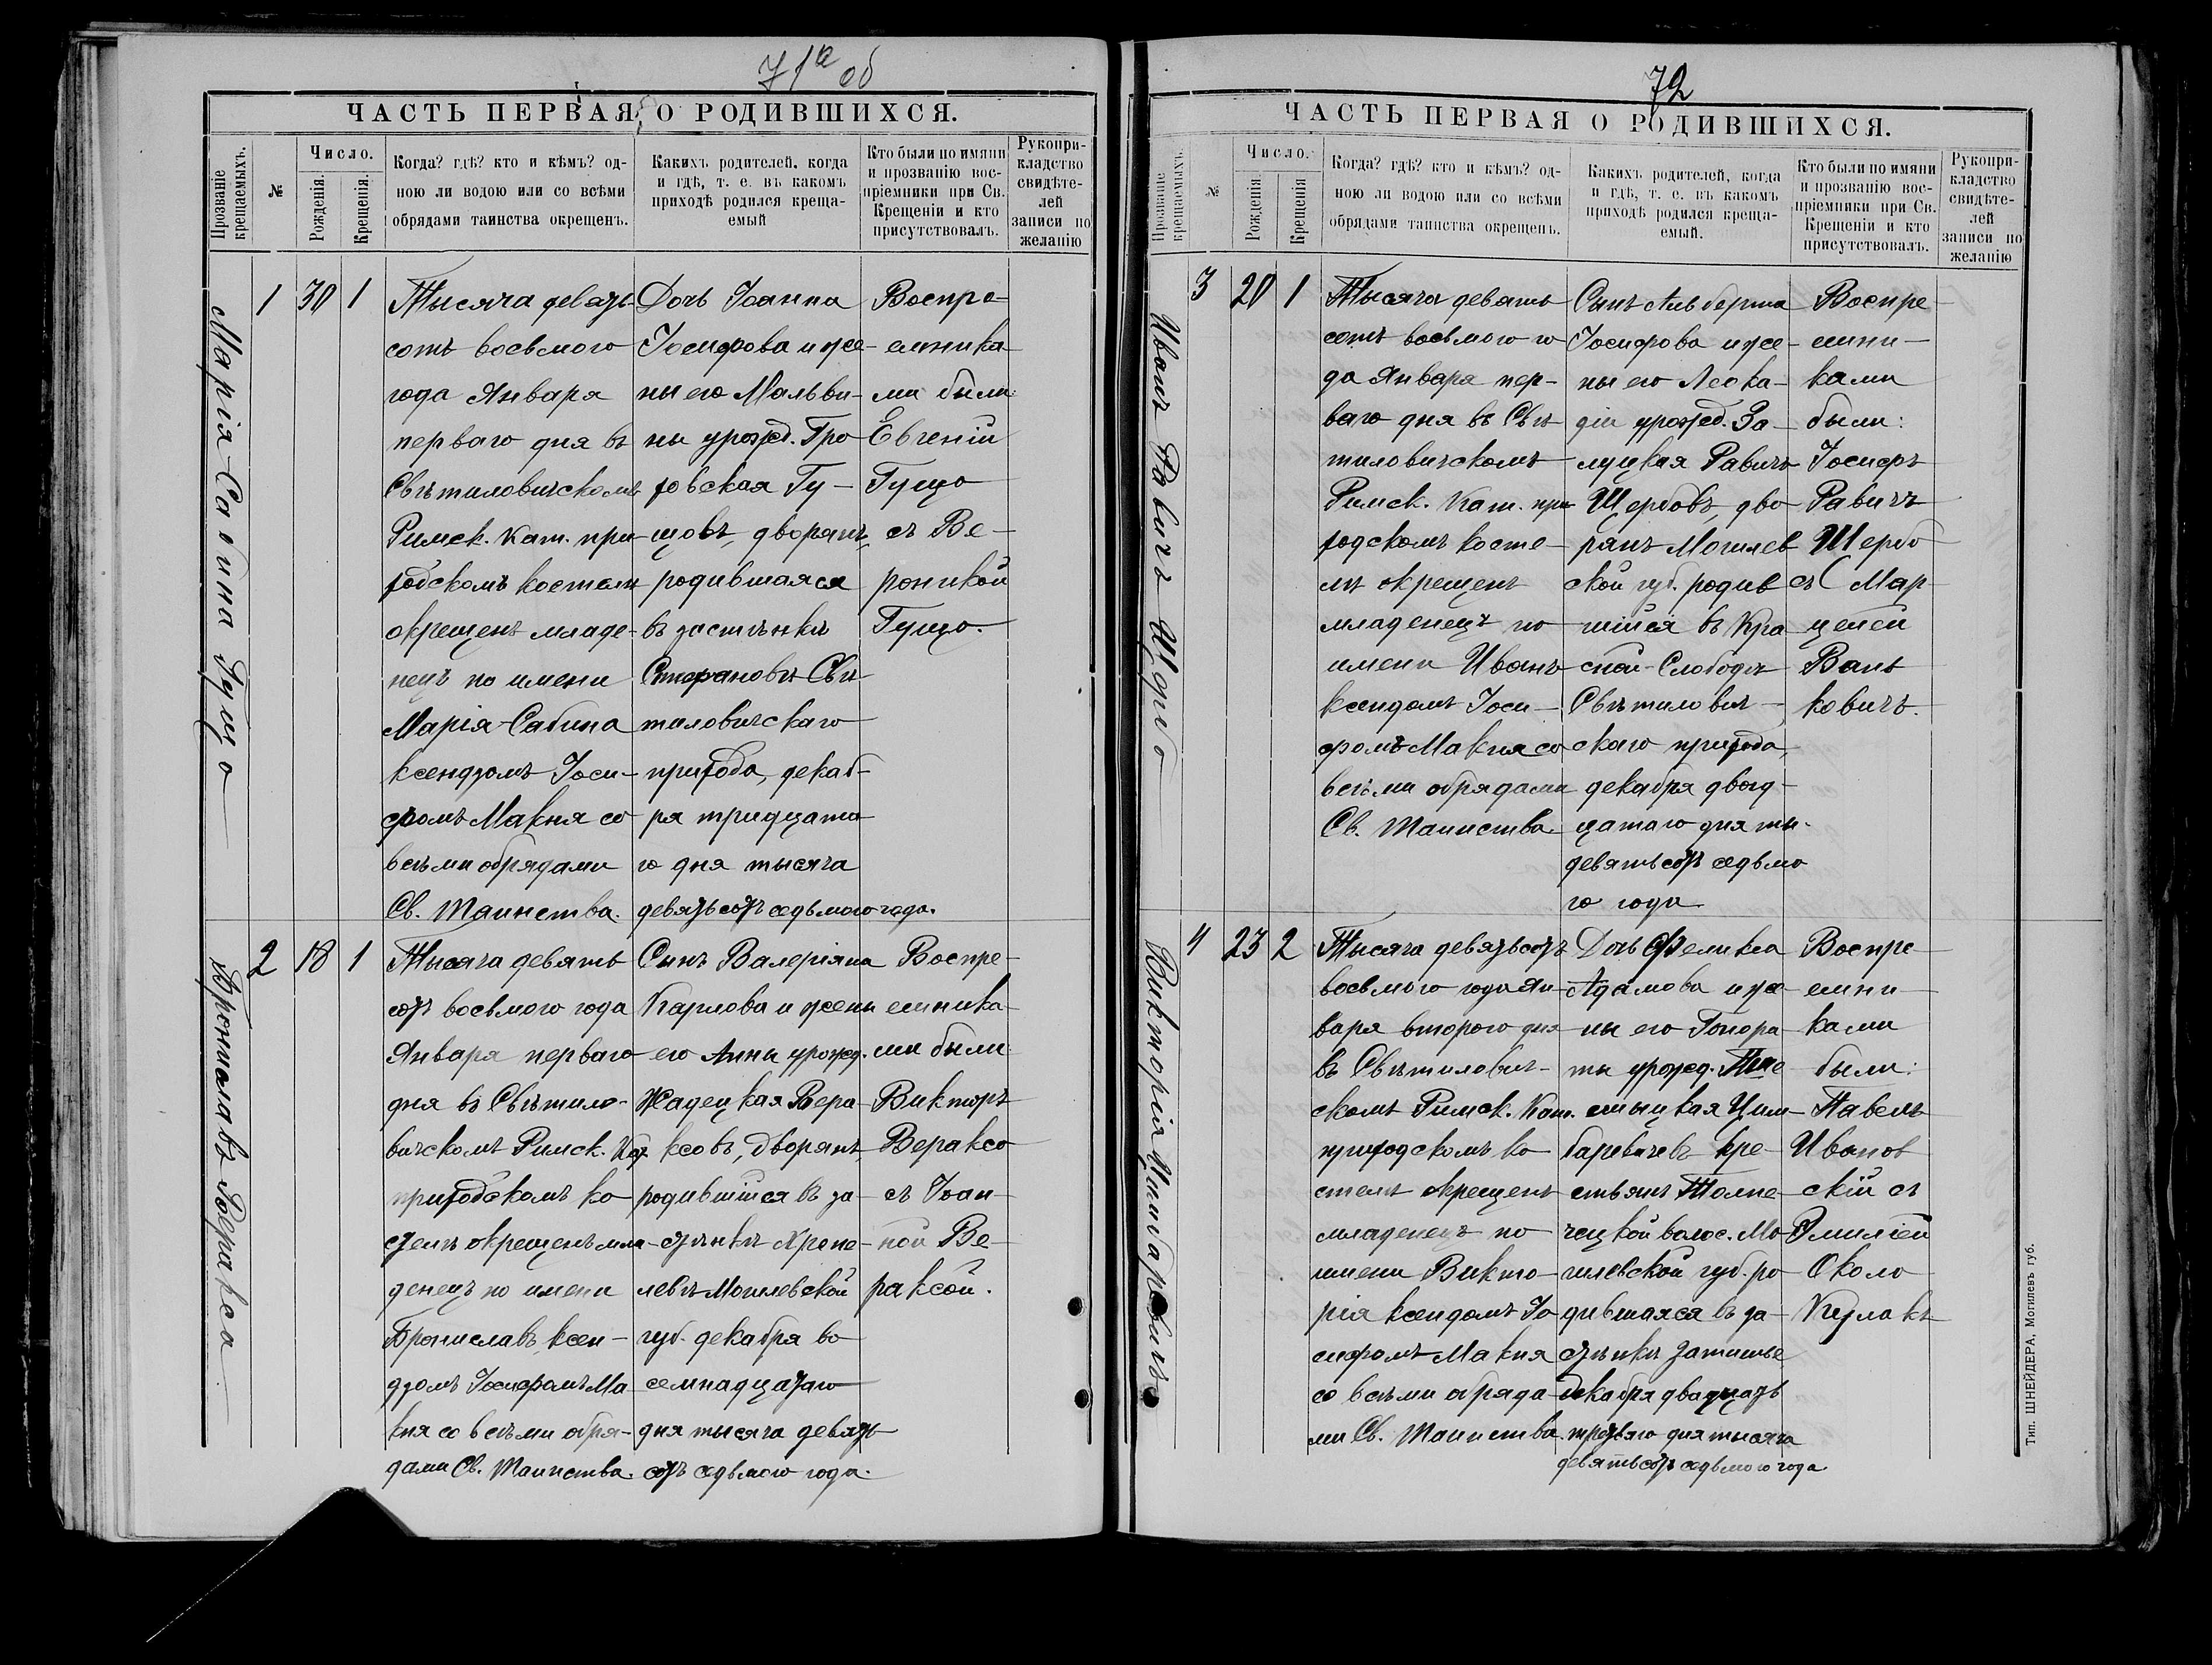 71а об
ЧАСТЬ ПЕРВАЯ, О РОДИВШИХСЯ.
Прозваніе крещаемыхъ.
№
Число.
Рожденія.
Крещенія.
Когда? гдѣ? кто и кѣмъ? од-
ною ли водою или со всѣми
обрядами таинства окрещенъ.
Какихъ родителей, когда
и гдѣ, т. е. въ какомъ
приходѣ родился креща-
емый
Кто были по имяни
и прозванію вос-
пріемники при Св.
Крещеніи и кто
присутствовалъ.
Рукопри-
кладство
свидѣте-
лей
записи по
желанію
Марія-Сабина Гуцо
1
30
1
Тысяча девять
сотъ восьмого
года Января
перваго дня въ
Свѣтиловичскомъ
Римск. Кат. при-
ходскомъ костелѣ
окрещенъ младе-
нецъ по имени
Марія-Сабина
ксендзомъ Іоси-
фомъ Макня со
всѣми обрядами
Св. Таинства.
Дочь Іоанна
Іосифова и же-
ны его Мальви-
ны урожд. Гро-
ховская Гу-
щовъ, дворянъ,
родившаяся
въ застѣнкѣ
Стефановъ Свѣ-
тиловичскаго
прихода, декаб-
ря тридцата-
го дня тысяча
девятьсотъ седьмого года.
Воспре-
емника-
ми были:
Евгеній
Гуцо
съ Ве-
роникой
Гуцо.
Брониславъ Веракса
2
18
1
Тысяча девять
сотъ восьмого года
Января перваго
дня въ Свѣтило-
вичскомъ Римск. Кат
приходскомъ ко
стелѣ окрещенъ мла-
денецъ по имени
Брониславъ ксен-
дзомъ Іосифомъ Ма
кня со всѣми обря-
дами Св. Таинства.
Сынъ Валеріяна
Карлова и жены
его Анны урожд.
Жадецкая Вера-
ксовъ, дворянъ,
родившійся въ за-
стѣнкѣ Хропе-
левъ Могилевской
губ. декабря во
семнадцатаго
дня тысяча девять
сотъ седьмого года.
Воспре-
емника-
ми были:
Викторъ
Вераксо
съ Іоан-
ной Ве-
раксой.
72
ЧАСТЬ ПЕРВАЯ О РОДИВШИХСЯ.
Прозваніе крещаемыхъ.
№
Число.
Рожденія.
Крещенія
Когда? гдѣ? кто и кѣмъ? од-
ною ли водою или со всѣми
обрядами таинства окрещенъ.
Какихъ родителей, когда
и гдѣ, т. е. въ какомъ
приходѣ родился креща-
емый.
Кто были по имяни
и прозванію вос-
пріемники при Св.
Крещеніи и кто
присутствовалъ.
Рукопри-
кладство
свидѣте-
лей
записи по
желанію
Иванъ Равичъ-Щербо
3
20
1
Тысяча девять
сотъ восьмого го
да Января пер-
ваго дня въ Свѣ-
тиловичскомъ
Римск. Кат. при-
ходскомъ косте-
лѣ окрещенъ
младенецъ по
имени Иванъ
ксендзомъ Іоси-
фомъ Макня со
всѣми обрядами
Св. Таинства.
Сынъ Альберта
Іосифова и же-
ны его Леока-
діи урожд. За-
луцкая Равичъ
Щербовъ, дво
рянъ Могилев
ской губ. родив
шійся въ Кра
сной-Слободѣ
Свѣтилович-
скаго прихода,
декабря двад-
цатаго дня ты-
девятьсотъ седьмо
го года
Воспре
емни-
ками
были:
Іосифъ
Равичъ
Щербо
съ Мар-
целей
Вань
ковичъ.
Викторія Цимбаревичъ
4
23
2
Тысяча девятьсотъ
восьмого года Ян-
варя второго дня
въ Свѣтилович-
скомъ Римск. Кат.
приходскомъ ко
стелѣ окрещенъ
младенецъ по
имени Викто-
рія ксендзомъ Іо
сифомъ Макня
со всѣми обряда-
ми Св. Таинства.
Дочь Феликса
Адамова и же-
ны его Гонора-
ты урожд.
Цим-
баревичевъ кре-
стьянъ Толпе-
чецкой волос. Мо-
гилевской губ. ро
дившаяся въ за-
стѣнкѣ Затишье
декабря двадцать
третьяго дня тысяча
девятьсотъ седьмого года.
Воспре-
емни-
ками
были:
Павелъ
Иванов
скій съ
Эмиліей
Около
Кулакъ
Тип. ШНЕЙДЕРА, Могилевъ губ.